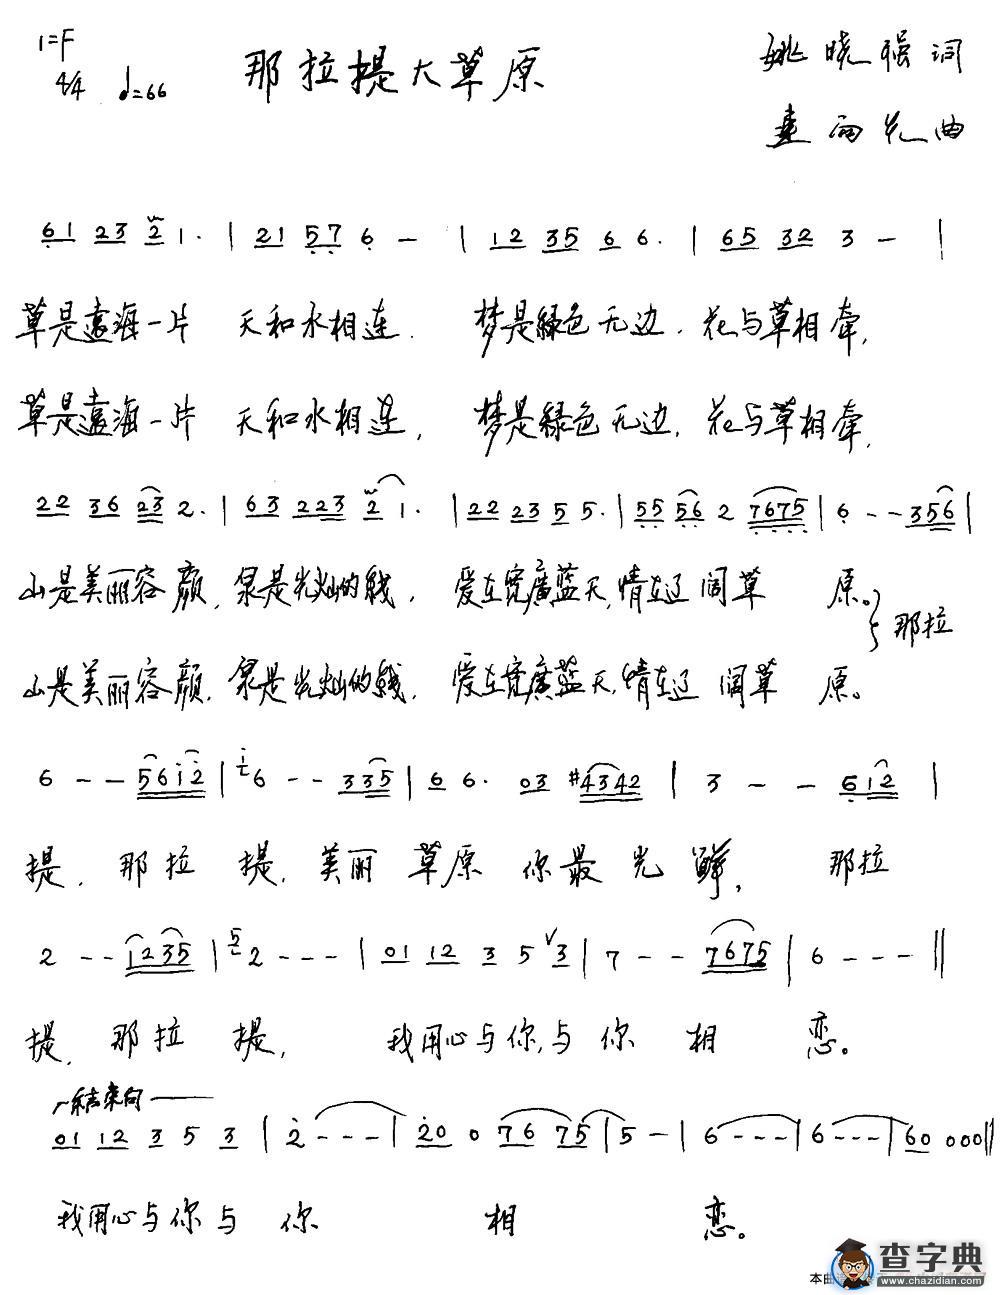 1=F
4/4 ♩=66
那拉提大草原
姚晓强词
雨光曲
61 23 2 1. | 21 57 6 - | 12 35 6 6. | 65 32 3 - |
草是遠海一片 天和水相连. 梦是緑色无边. 花与草相牵,
草是遠海一片 天和水相连, 梦是緑色无边, 花与草相牵,
22 36 23 2. | 63 223 2 1. | 22 23 5 5. | 55 56 2 7675 | 6 - - 356 |
山是美丽容颜, 泉是光灿的线. 爱在宽廣蓝天, 情在辽阔草 原。 那拉
山是美丽容颜. 泉是光灿的线. 爱在宽廣蓝天, 情在辽阔草 原。
6 - - 5612 | 12 6 - - 335 | 6 6. 03 #4342 | 3 - - 612 |
提, 那拉 提, 美丽 草原 你最光鲜, 那拉
2 - - 1235 | 5 2 - - - | 01 12 3 5 ∨ 3 | 7 - - 7675 | 6 - - - ‖
提, 那拉 提, 我用心与你, 与你 相 恋。
结束句
01 12 3 5 3 | 2 - - - | 20 0 76 75 | 5 - | 6 - - - | 6 - - - | 60 000 ‖
我用心与你与 你 相 恋。
本曲
查字典
www.chazidian.com